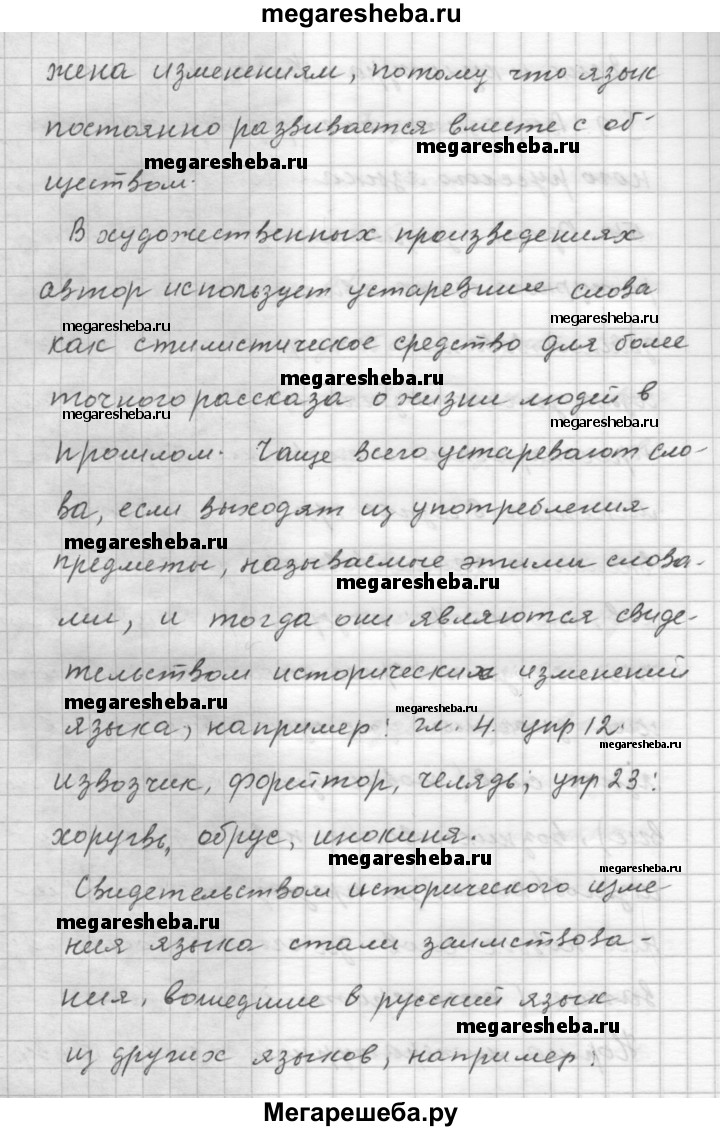 megaresheba.ru
жена изменениям, потому что язык
постоянно развивается вместе с об-
megaresheba.ru
megaresheba.ru
ществом.
В художественных произведениях
автор использует устаревшие слова
megaresheba.ru
megaresheba.ru
как стилистическое средство для более
megaresheba.ru
точного рассказа о жизни людей в
megaresheba.ru
megaresheba.ru
прошлом. Чаще всего устаревают сло-
ва, если выходят из употребления
megaresheba.ru
предметы, называемые этими слова-
megaresheba.ru
ми, и тогда они являются свиде-
тельством исторических изменений
megaresheba.ru
megaresheba.ru
языка, например: гл. 4. упр 12.
megaresheba.ru
извозчик, форейтор, челядь; упр 23:
хоругвь, обрус, инокиня.
megaresheba.ru
megaresheba.ru
Свидетельством исторического изме
megaresheba.ru
ния языка стали заимствова-
ния, вошедшие в русский язык
megaresheba.ru
из других языков, например:
Мегарешеба.ру